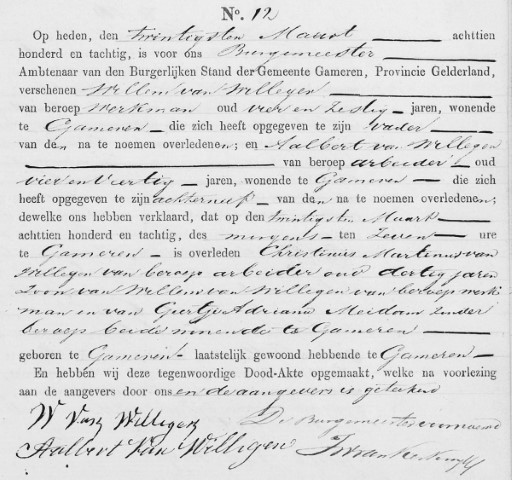 No. 12
Op heden, den twintigsten Maart achttien
honderd en tachtig, is voor ons Burgemeester
Ambtenaar van den Burgerlijken Stand der Gemeente Gameren, Provincie Gelderland,
verschenen Willem van Willegen
van beroep Werkman oud vier en zestig jaren, wonende
te Gameren die zich heeft opgegeven te zijn vader
van den na te noemen overledenen; en Aalbert van Willegen
van beroep arbeider oud
vier en veertig jaren, wonende te Gameren die zich
heeft opgegeven te zijn achterneef van den na te noemen overledenen;
dewelke ons hebben verklaard, dat op den twintigsten Maart
achttien honderd en tachtig, des morgens ten zeven ure
te Gameren is overleden Christinus Martinus van
Willegen van beroep arbeider oud dertig jaren
Zoon van Willem van Willegen van beroep werk
man en van Geertje Adriana Meidam zonder
beroep beide wonende te Gameren
geboren te Gameren laatstelijk gewoond hebbende te Gameren
En hebben wij deze tegenwoordige Dood-Akte opgemaakt, welke na voorlezing
aan de aangevers door ons en de aangevers is geteekend
W Van Willegen De Burgemeester voornoemd
Aalbert Van Willigen